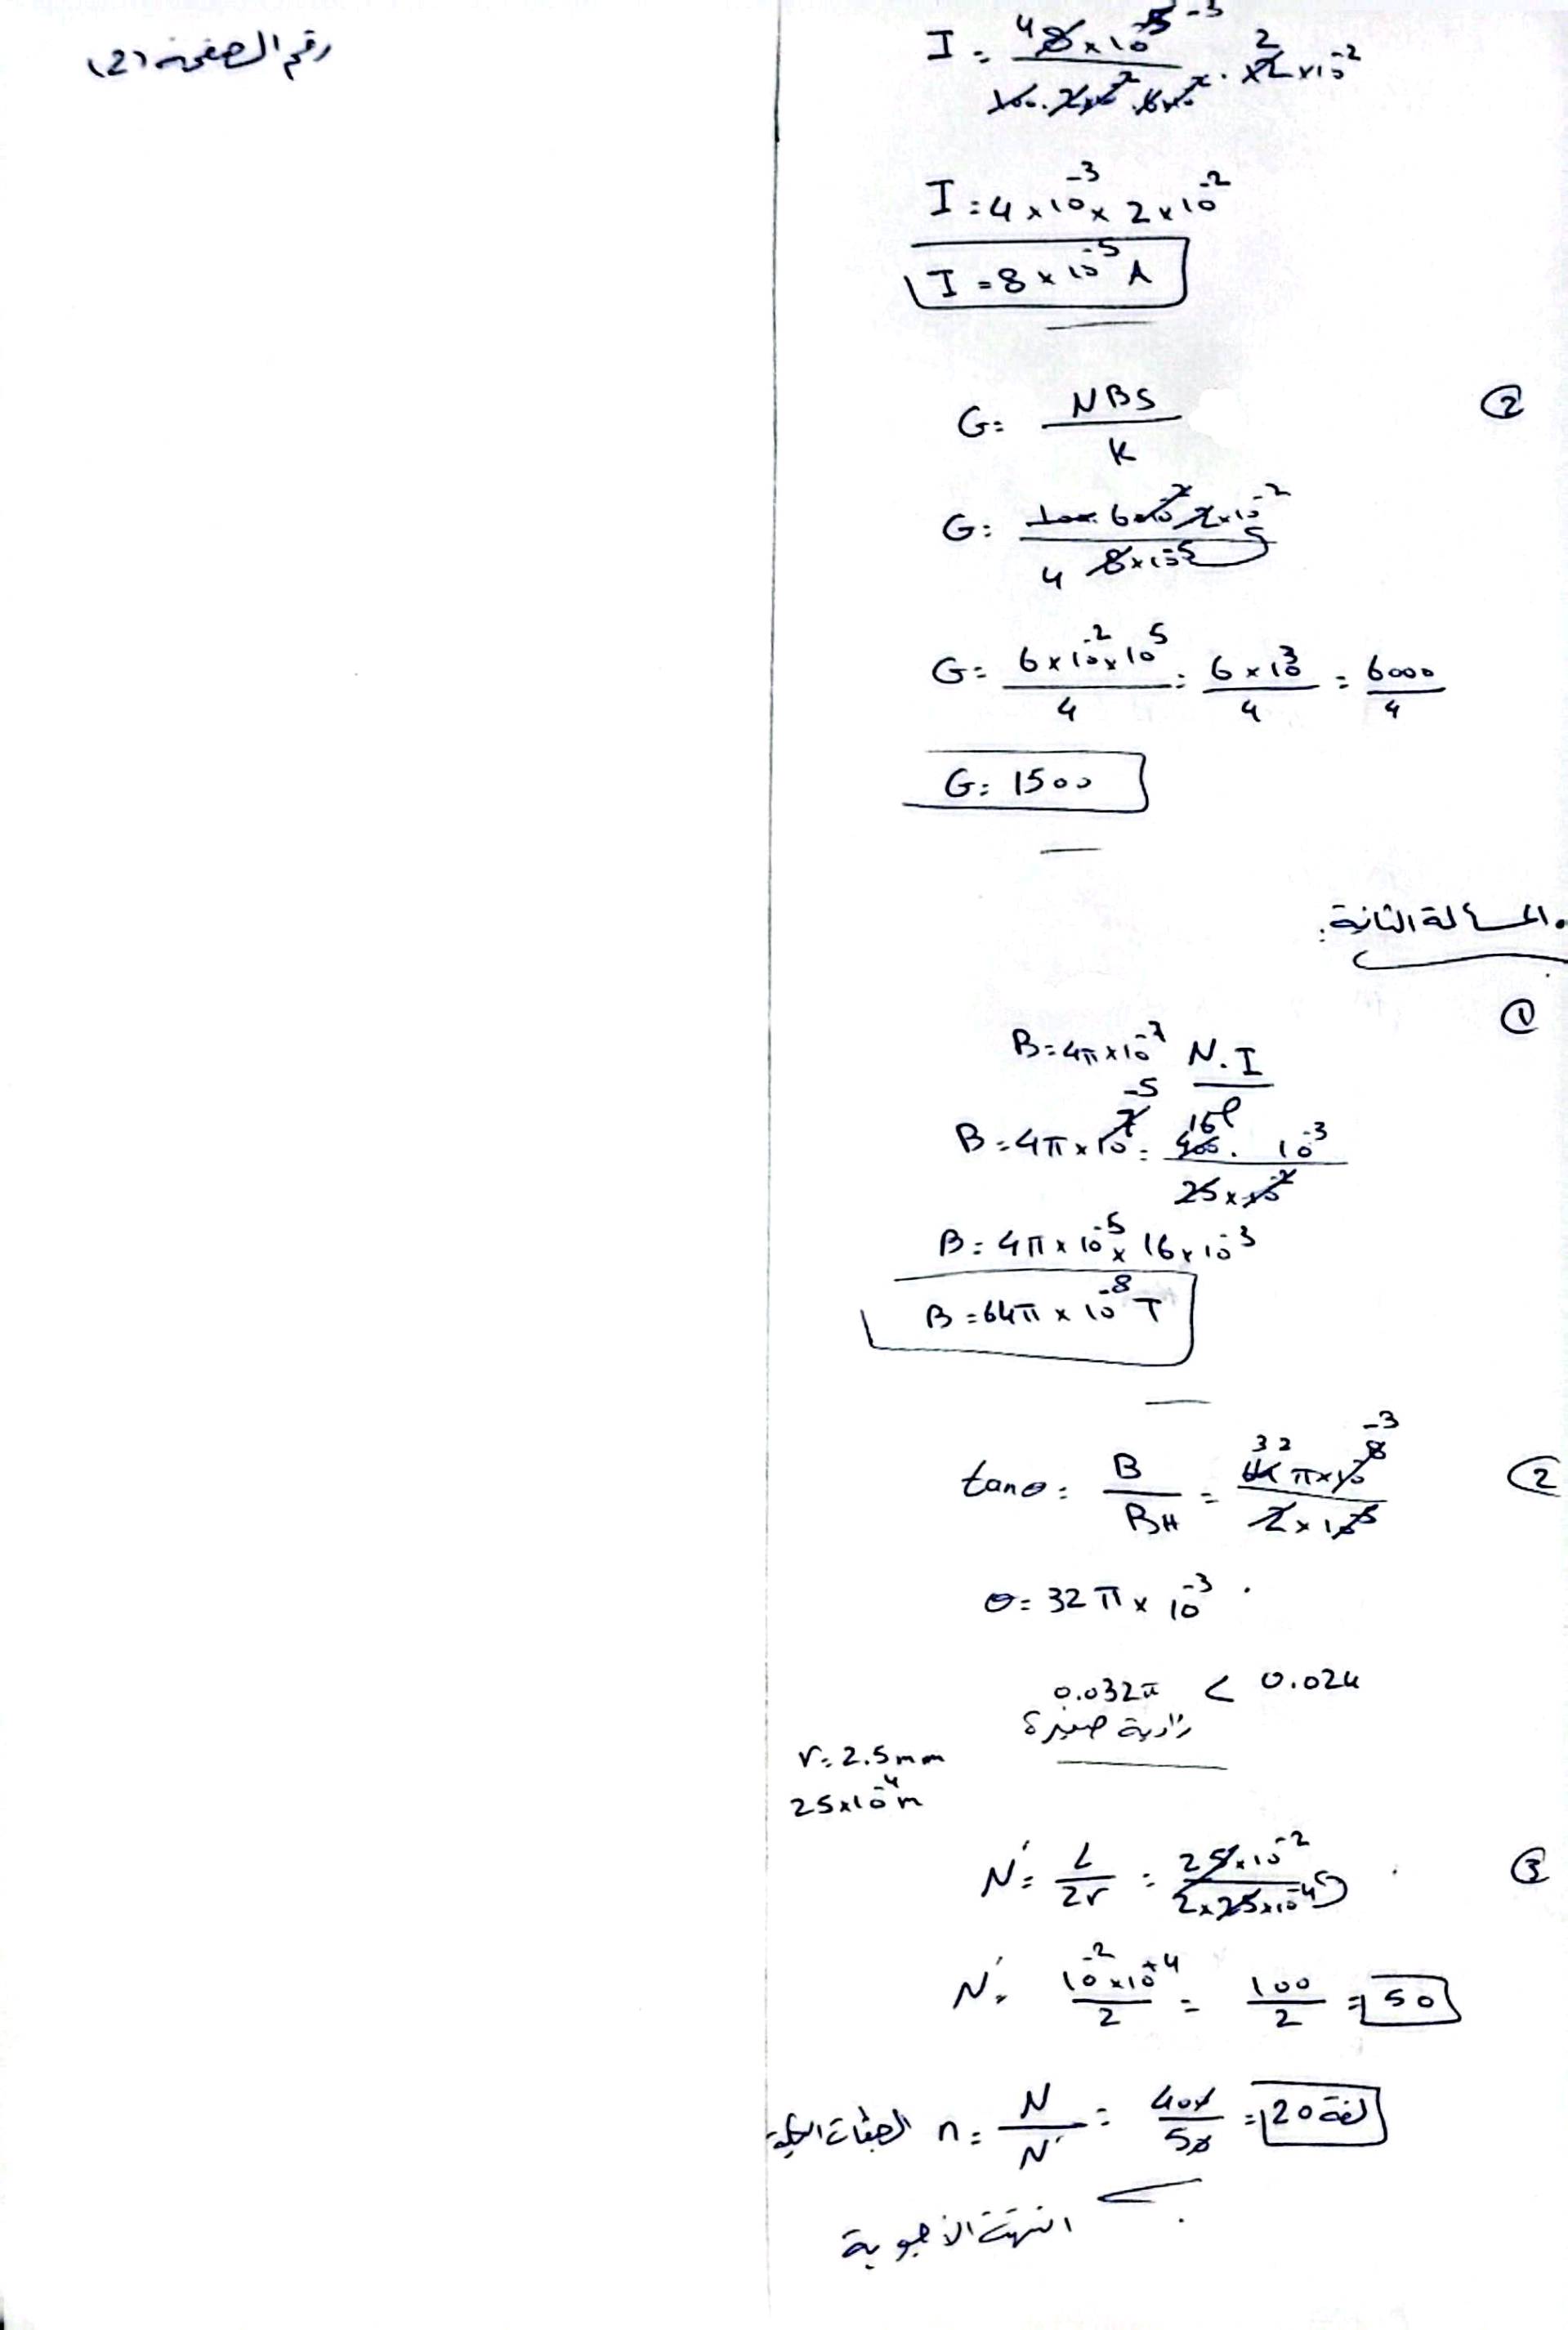 رقم الصفحة (2)
I = 4 8×10⁻⁵ ⁻³ / 100 . 2×10⁻² . 6×10⁻² . ×2 2 ×10⁻²
I = 4 × 10⁻³ × 2 × 10⁻²
I = 8 × 10⁻⁵ A
② G = NBS / K
G = 100 × 6×10⁻² 2×10⁻² / 4 8×10⁻⁵
G = 6 × 10⁻² × 10⁵ / 4 = 6 × 10³ / 4 = 6000 / 4
G = 1500
المسألة الثانية:
①
B = 4π × 10⁻⁷ N . I / ℓ
B = 4π × 10⁻⁷ ⁻⁵ = 16 400 . 10⁻³ / 25 × 10⁻²
B = 4π × 10⁻⁵ × 16 × 10⁻³
B = 64π × 10⁻⁸ T
② tan θ = B / BH = 32 64 π × 10⁻⁸ ⁻³ / 2 × 10⁻⁵
θ = 32 π × 10⁻³
0.032π < 0.024
زاوية صغيرة
r = 2.5 mm
25×10⁻⁴ m
③ N' = L / 2r = 25×10⁻² / 2×25×10⁻⁴
N' = 10⁻² × 10⁺⁴ / 2 = 100 / 2 = 50
n = N / N' = 400 / 50 = 20 لفة
انتهت الأجوبة